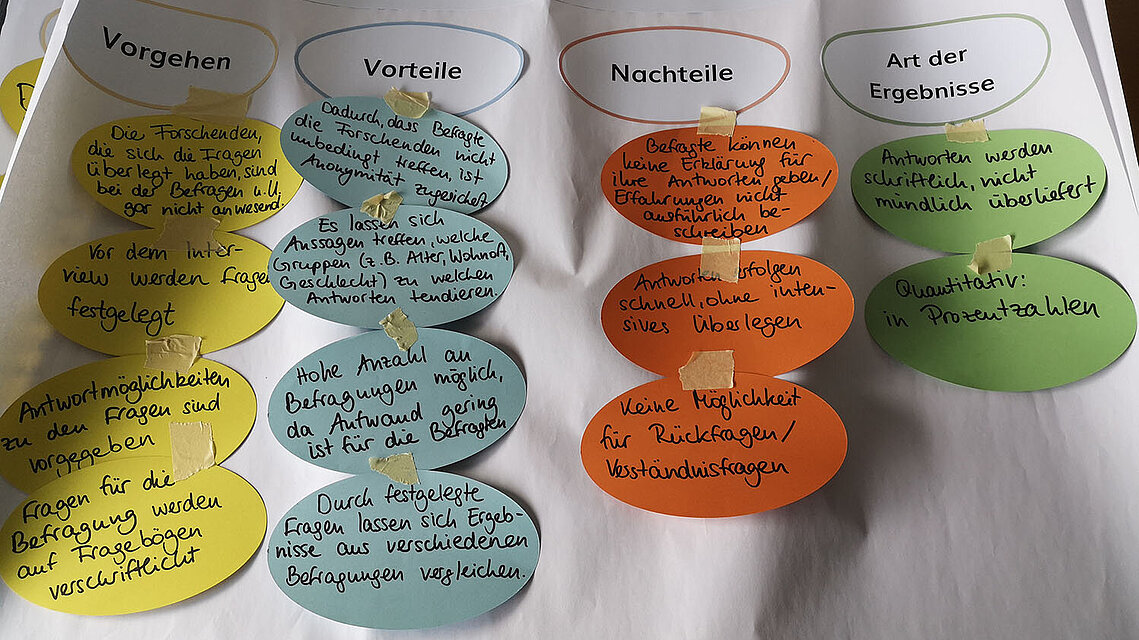 Vorgehen
Die Forschenden,
die sich die Fragen
überlegt haben, sind
bei der Befragen u.U.
gar nicht anwesend.
Vor dem Inter-
view werden Fragen
festgelegt
Antwortmöglichkeiten
zu den Fragen sind
vorgegeben
Fragen für die
Befragung werden
auf Fragebögen
verschriftlicht
Vorteile
Dadurch, dass Befragte
die Forschenden nicht
unbedingt treffen, ist
Anonymität zugesichert
Es lassen sich
Aussagen treffen, welche
Gruppen (z.B. Alter, Wohnort,
Geschlecht) zu welchen
Antworten tendieren.
Hohe Anzahl an
Befragungen möglich,
da Antwand gering
ist für die Befragten
Durch festgelegte
Fragen lassen sich Ergeb-
nisse aus verschiedenen
Befragungen vergleichen.
Nachteile
Befragte können
keine Erklärung für
ihre Antworten geben/
Erfahrungen nicht
ausführlich be-
schreiben
Antworten erfolgen
schnell, ohne inten-
sives Überlegen
Keine Möglichkeit
für Rückfragen/
Verständnisfragen
Art der
Ergebnisse
Antworten werden
schriftlich, nicht
mündlich überliefert
Quantitativ:
in Prozentzahlen